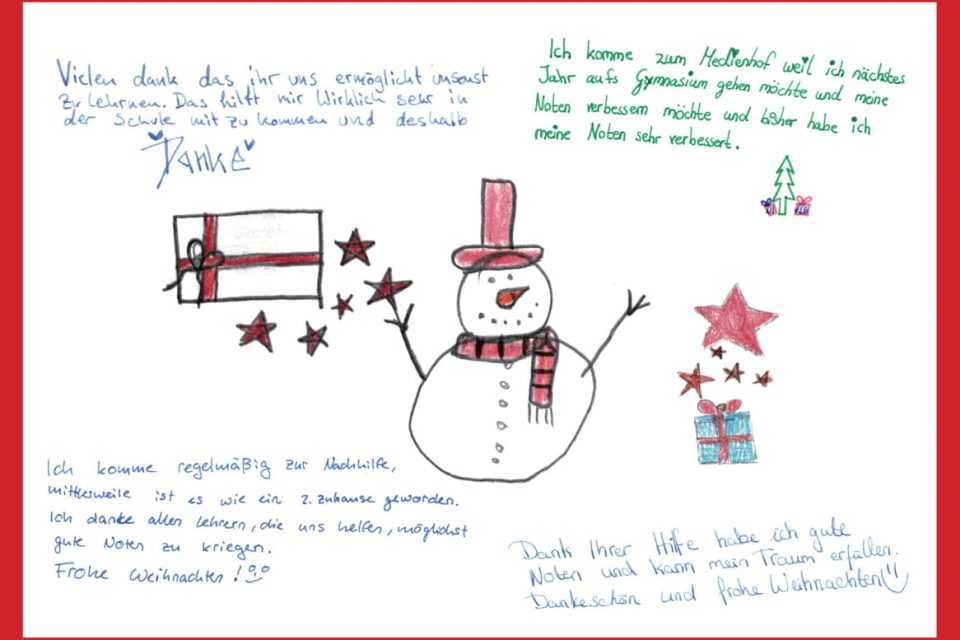 Vielen dank das ihr uns ermöglicht umsonst
zu lehrnen. Das hilft mir Wirklich sehr in
der Schule mit zu kommen und deshalb
Danke
Ich komme zum Medienhof weil ich nächstes
Jahr aufs Gymnasium gehen möchte und meine
Noten verbessern möchte und bisher habe ich
meine Noten sehr verbessert.
Ich komme regelmäßig zur Nachhilfe,
mittlerweile ist es wie ein 2. zuhause geworden.
Ich danke allen Lehrern, die uns helfen, möglichst
gute Noten zu kriegen.
Frohe Weihnachten!
Dank Ihrer Hilfe habe ich gute
Noten und kann mein Traum erfüllen.
Dankeschön und frohe Weihnachten